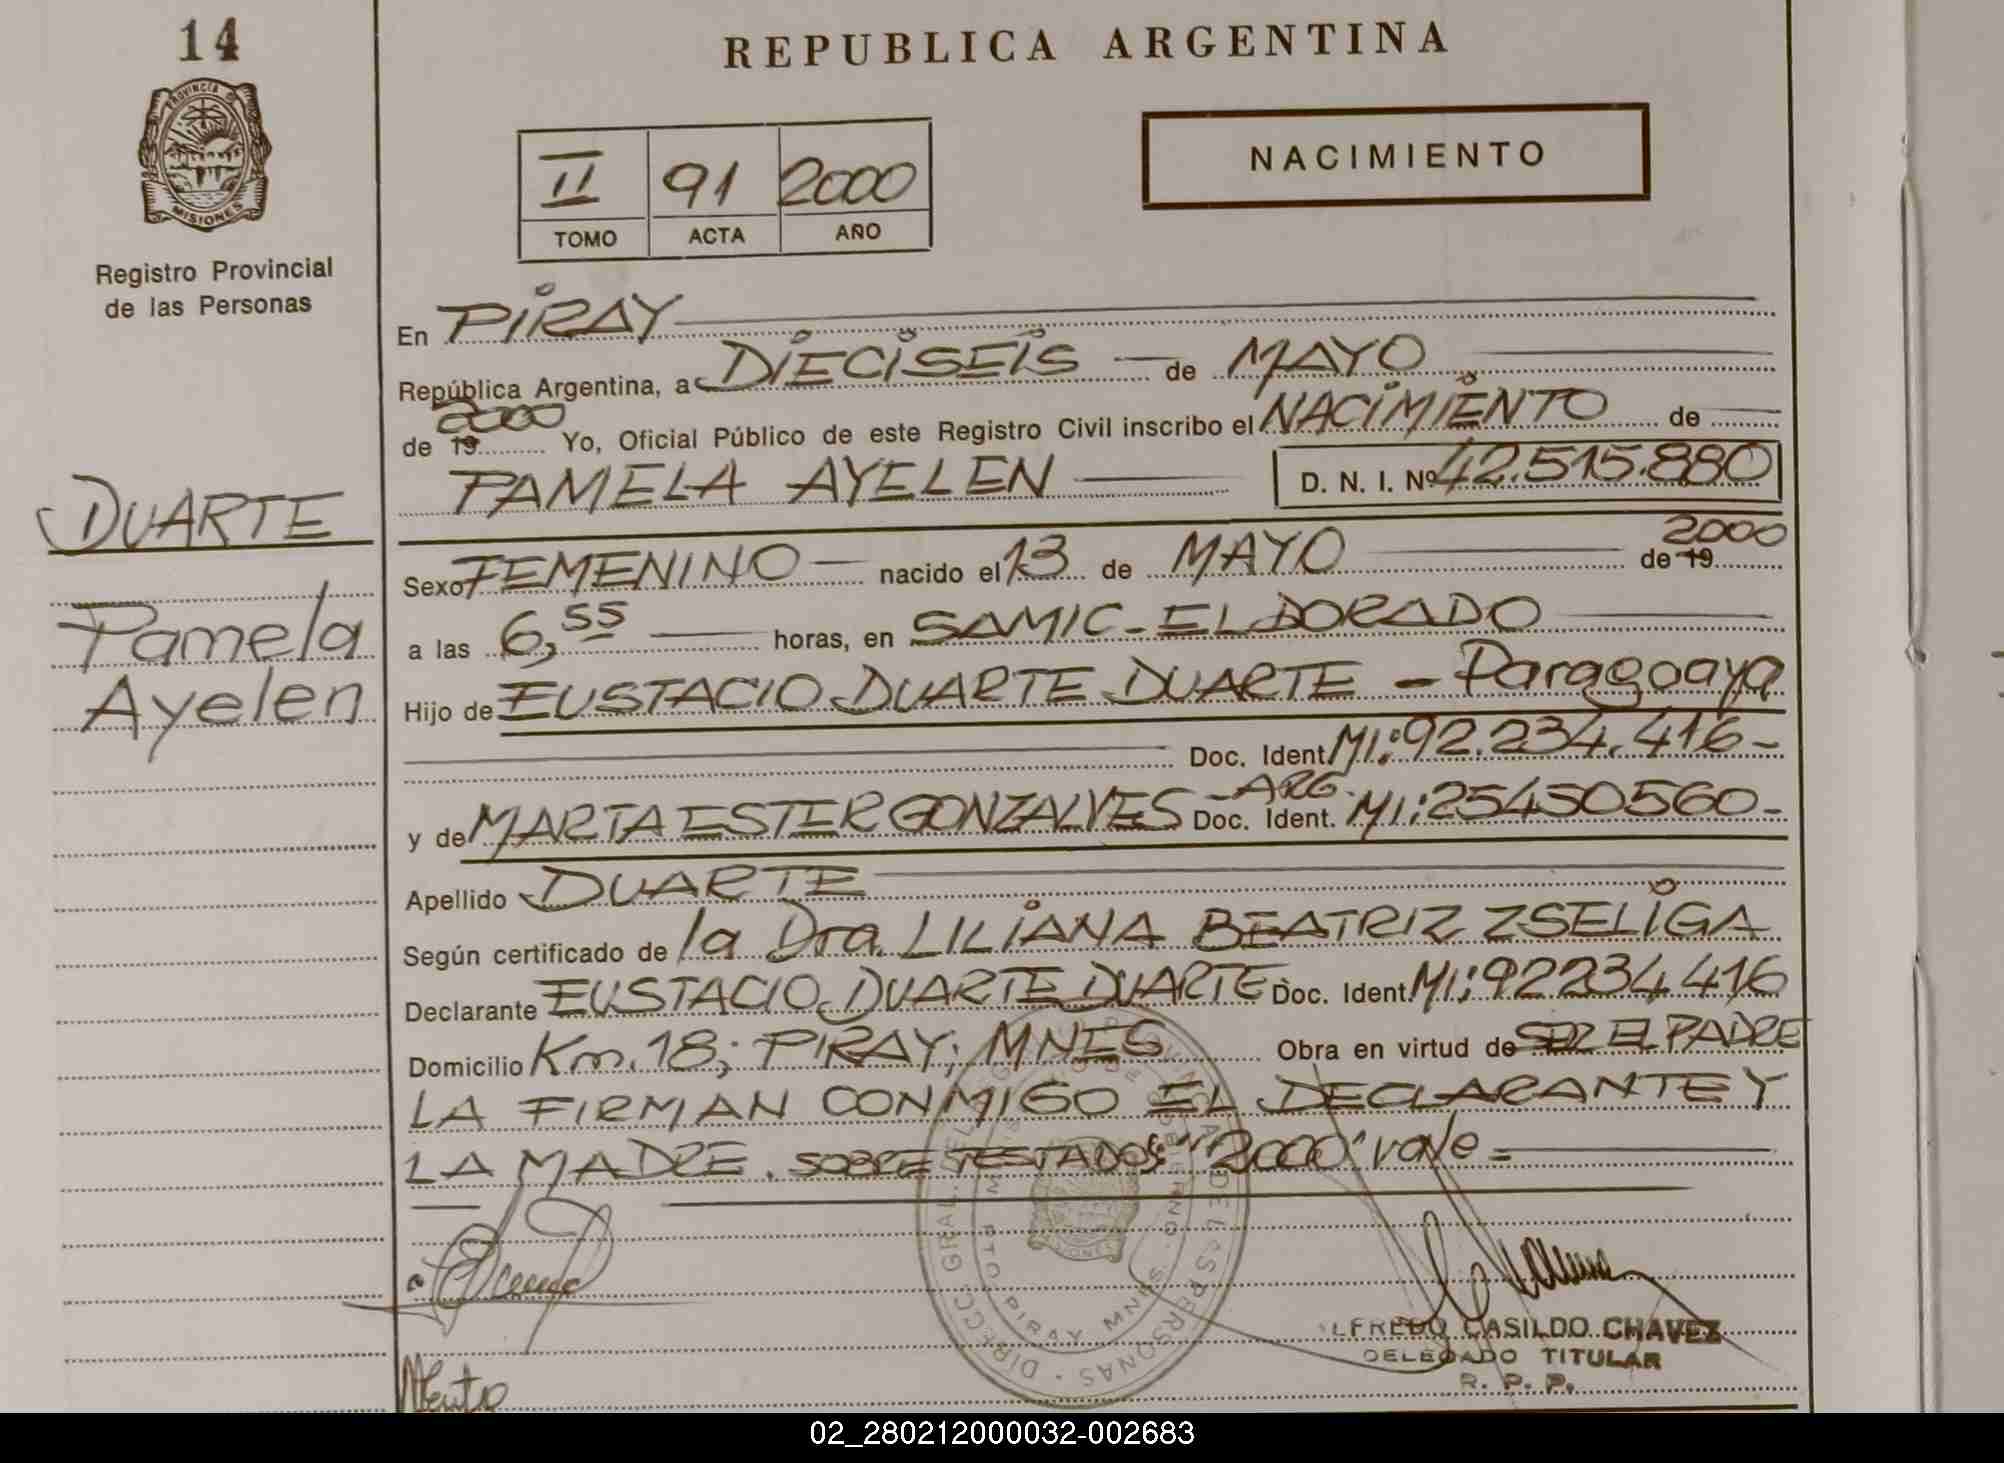 14
REPUBLICA ARGENTINA
PROVINCIA DE
MISIONES
Registro Provincial
de las Personas
II 91 2000
TOMO ACTA AÑO
NACIMIENTO
En PIRAY
República Argentina, a DIECISEIS de MAYO
de 19 2000 Yo, Oficial Público de este Registro Civil inscribo el NACIMIENTO de
PAMELA AYELEN D. N. I. Nº 42.515.880
DUARTE
Pamela
Ayelen
Sexo FEMENINO nacido el 13 de MAYO de 19 2000
a las 6,55 horas, en SAMIC-ELDORADO
Hijo de EUSTACIO DUARTE DUARTE - Paraguaya
Doc. Ident. MI:92.234.416-
y de MARTA ESTER GONZALVES - ARG. Doc. Ident. MI:25450560-
Apellido DUARTE
Según certificado de la Dra. LILIANA BEATRIZ ZSELIGA
Declarante EUSTACIO DUARTE DUARTE Doc. Ident. MI:92234416
Domicilio Km.18; PIRAY; MNES Obra en virtud de SER EL PADRE
LA FIRMAN CONMIGO EL DECLARANTE Y
LA MADRE. SOBRE TESTADOS: "2000" vale =
PIRAY MNES
PERSONAS
ALFREDO CASILDO CHAVEZ
DELEGADO TITULAR
R. P. P.
02_280212000032-002683